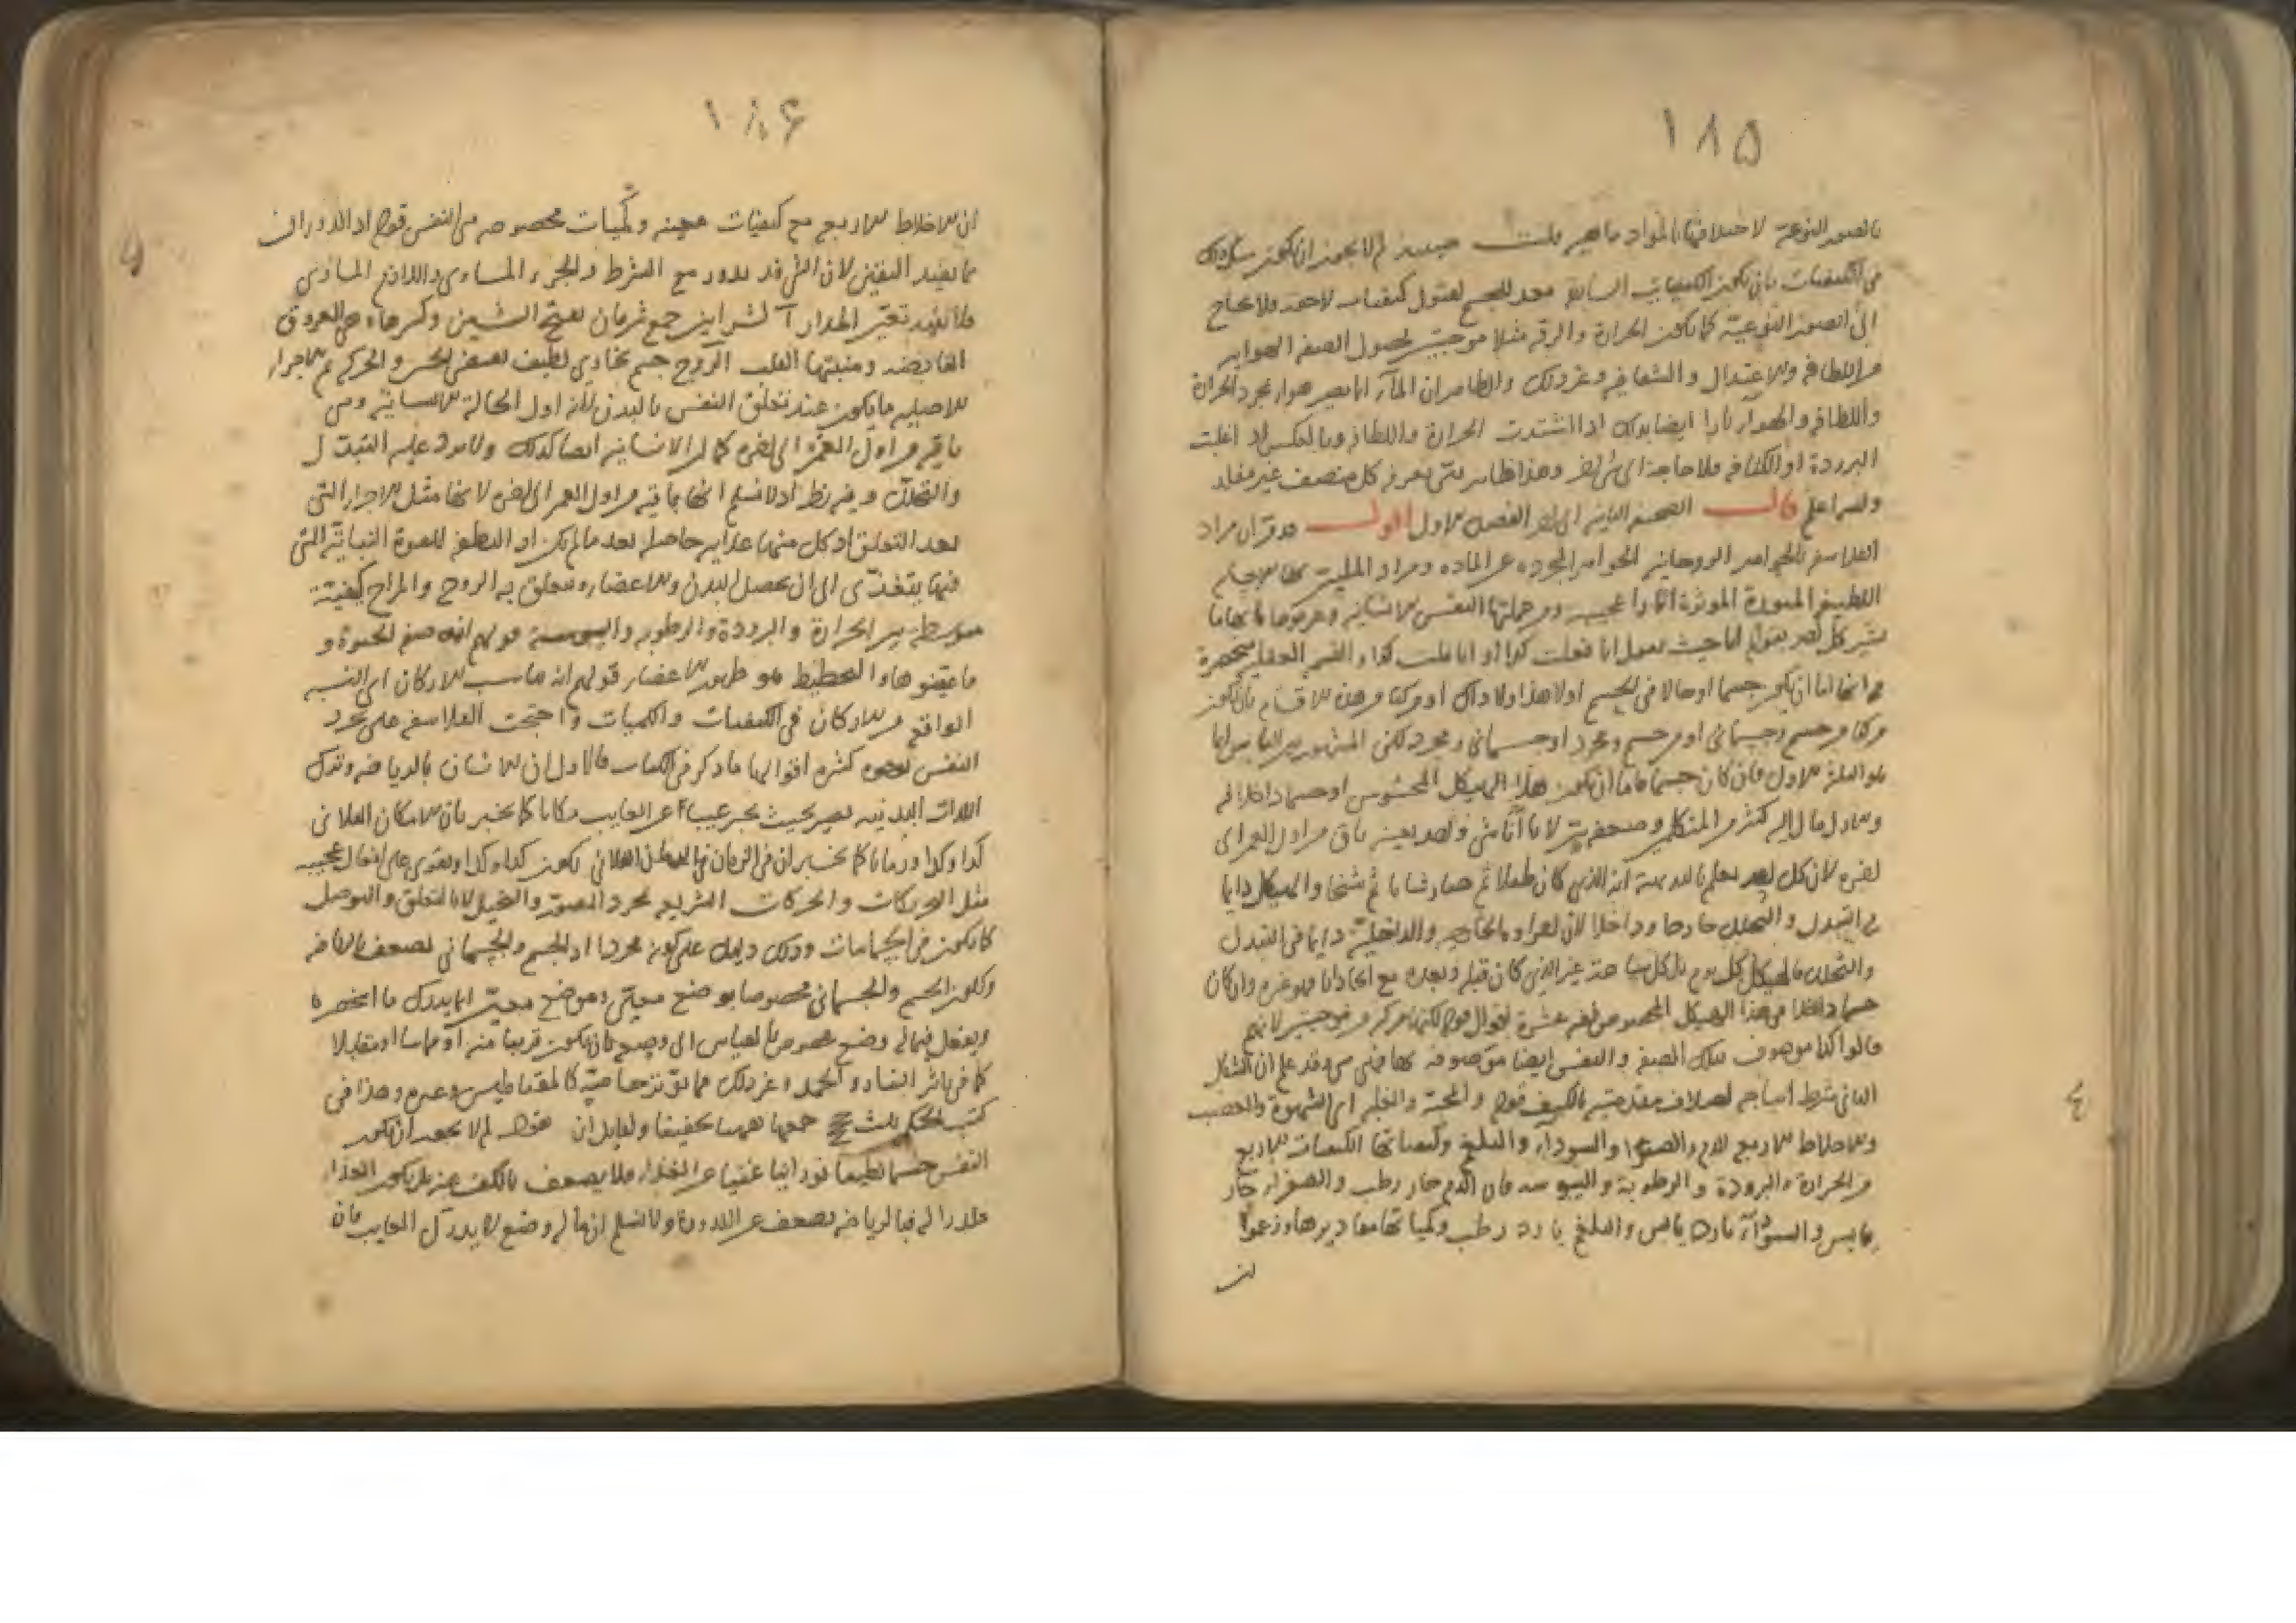 ١٨٥
بالصور النوعية لاختلافها بالمواد ماهير قلت حينئذ لم لا يجوز ان يكون كذلك
فى الكيفيات بان يكون الكيفيات السابقة معدة للجسم لقبول كيفيات لاحقة ولا يحتاج
الى الصور النوعية كما يكون الحرارة والرقة مثلا موجبتين لحصول الصفة الهوائية
من اللطافة والاعتدال والشفافية وغير ذلك والظاهر ان الماء انما يصير هواء بمجرد الحرارة
واللطافة والهواء نارا ايضا بذلك اذا اشتدت الحرارة واللطافة وبالعكس اذا غلبت
البرودة او الكثافة فلا حاجة الى شئ اخر وهذا ظاهر يعرفه كل منصف غير مقلد
والله اعلم قال الصحيفة الثانية الى اخر الفصل الاول اقول مراد
الفلاسفة بالجواهر الروحانية الجواهر المجردة عن المادة ومراد المليين بها الاجسام
اللطيفة المنورة الموثرة اثارا عجيبة ومن جملتها النفس الانسانية وعرفوها بانها ما
يشير كل احد بقوله انا حيث يقول انا فعلت كذا او انا قلت كذا والقسمة العقلية منحصرة
فى انها اما ان يكون جسما او حالا فى الجسم او لا هذا ولا ذاك او مركبا من هذه الاقسام بان يكون
مركبا من جسم وجسمانى او من جسم ومجرد او جسمانى ومجرد لكن المشهور
هو الثلثة الاول فان كان جسما فاما ان يكون هذا الهيكل المحسوس او جسما داخلا فيه
والاول مال اليه كثير من المتكلمين وضعفه لان الانا شئ واحد بعينه باق من اول العمر الى
اخره لان كل احد يعلم بالبديهة انه الذى كان طفلا ثم صار شابا ثم شيخا والهيكل دايما
فى التبدل والتحلل خارجا وداخلا لان اجزاءه الخارجية والداخلية دايما فى التبدل
والتحلل فالهيكل كل يوم بل كل ساعة غير الذى كان قبله وبعده مع انا فهو غيره وان كان
جسما داخلا فى هذا الهيكل المخصوص ففيه عشرة اقوال قوله لكنها مركبة من موجبتين لانهم
قالوا كذا موصوف بتلك الصفة والنفس ايضا موصوفة بها فهى هى وقد علم ان الشكل
الثانى شرط انتاجه اختلاف مقدمتيه بالكيف قوله والمحبة والغلبة اى الشهوة والغضب
والاخلاط الاربع الدم والصفراء والسوداء والبلغم وكيفياتها الكيفيات الاربع
من الحرارة والبرودة والرطوبة واليبوسة فان الدم حار رطب والصفراء حار
يابس والسوداء بارد يابس والبلغم بارد رطب وكمياتها مقاديرها وزعموا
ان
١٨۶
ان الاخلاط الاربع مع كيفيات معينة وكميات مخصوصة هى النفس قوله اذ الدوران
ما يفيد اليقين لان الشئ قد يدور مع الشرط والجزء المساوى واللازم المساوى
فلا يفيد تعين المدار آ الشرايين جمع شريان بفتح الشين وكسرها وهى العروق
النابضة ومنبتها القلب الروح جسم بخارى لطيف يقتضى الحس والحركة ثم الاجزاء
الاصلية ما يكون عند تعلق النفس بالبدن لانه اول الحالة الانسانية وهى
باقية من اول العمر الى اخره كما ان الانسانية ايضا كذلك ولا يرد عليه التبدل
والتحلل وفيه نظر اذ لا نسلم انها باقية من اول العمر الى اخره لانها مثل الاجزاء التى
بعد التعلق اذ كل منهما غذائية حاصلة بعد ما لم يكن او النطفة للقوة النباتية التى
فيها يتغذى الى ان يحصل البدن والاعضاء ويتعلق به الروح والمزاج كيفية
متوسطة بين الحرارة والبرودة والرطوبة واليبوسة قولهم انه صفة الحيوة و
ما عيضوها والتخطيط هو ظهور الاعضاء قولهم انه تناسب الاركان اى النسبة
الواقع من الاركان فى الكيفيات والكميات واحتجت الفلاسفة على تجرد
النفس بوجوه كثيرة اقواها ما ذكر فى الكتاب فالاول ان الانسان بالرياضة وترك
اللذات البدنية يصير بحيث يخبر عن الغايب مكانا كما يخبر بان المكان الفلانى
كذا وكذا او زمانا كما يخبر ان فى الزمان الفلانى يكون كذا وكذا ويقوى على افعال عجيبة
مثل الادراكات والحركات السريعة بمجرد التصور والتخيل لا بالتعلق والتوصل
كما يكون فى الجسمانيات وذلك دليل على كونه مجردا اذ الجسم والجسمانى يضعف بالرياضة
ولكون الجسم والجسمانى مخصوصا بوضع معين وموضع معين انما يدرك ما
ويفعل فيما له وضع مخصوص بالقياس الى وضعه بان يكون قريبا منه او مماسا او مقابلا
كما فى تاثير النار والجمد وغير ذلك مما يؤثر بخاصية كالمقناطيس وغيره وهذا فى
كتب الحكمة بلثت جمعها ههنا تحقيقا ولقايل ان يقول لم لا يجوز ان يكون
النفس جسما لطيفا نورانيا غنيا عن الغذاء فلا يضعف بالكف عنه بل يكون الغذاء
فبالرياضة يضعف عن ولا نسلم ان ما له وضع لا يدرك الغايب فان